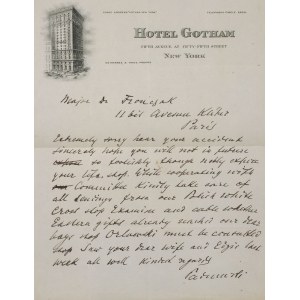 HOTEL GOTHAM
FIFTH AVENUE AT FIFTY-FIFTH STREET
NEW YORK
Major de Fronczak
11 bis Avenue Kleber
Paris
Extremely sorry hear your accident
Sincerely hope you will not in future
so foolishly though nobly expose
your life. stop. While cooperating with
Committee kindly take care of
all sendings from our Polish white
Cross stop Examine and cable whether
Eastern gifts already reached our dear
boys stop Orlowski must be consulted
stop Saw your dear wife and Elzis last
week all well kindest regards
Paderewski